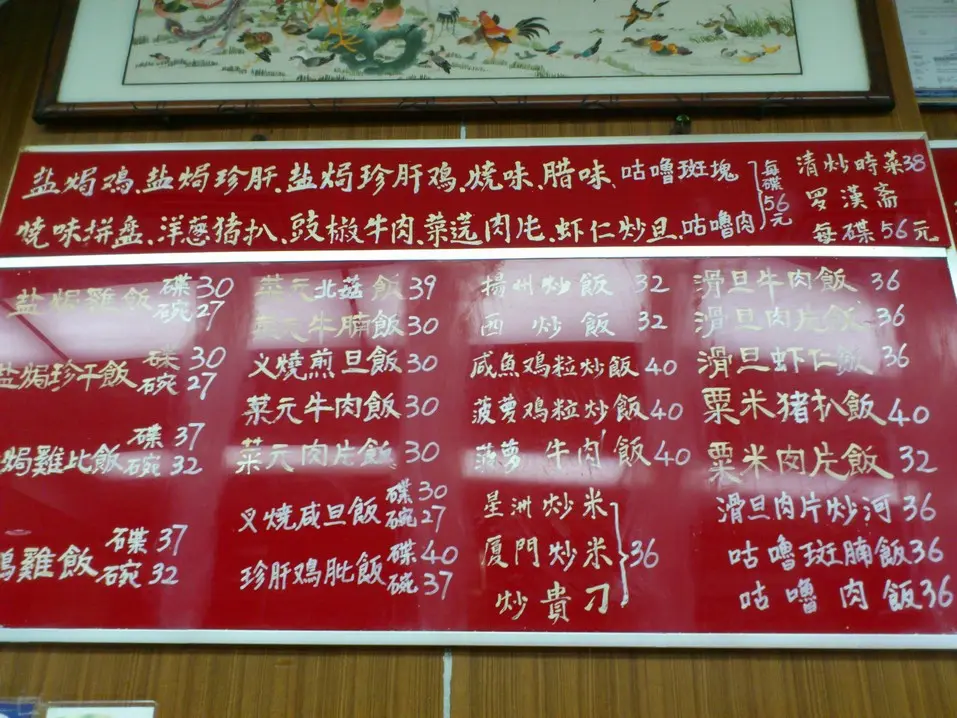 盐焗鸡、盐焗珍肝、盐焗珍肝鸡、烧味、腊味、咕噜斑塊
烧味拼盘、洋葱猪扒、豉椒牛肉、菜选肉片、虾仁炒旦、咕噜肉
每碟56元
清炒時菜38
罗漢斋
每碟56元
盐焗雞飯 碟30
碗27
盐焗珍干飯 碟30
碗27
焗雞比飯 碟37
碗32
雞飯 碟37
碗32
菜元北菇飯39
菜元牛腩飯30
义燒煎旦飯30
菜元牛肉飯30
菜元肉片飯30
义燒咸旦飯 碟30
碗27
珍肝鸡肶飯 碟40
碗37
揚州炒飯 32
西炒飯 32
咸魚鸡粒炒飯40
菠萝鸡粒炒飯40
菠萝牛肉飯40
星洲炒米
厦門炒米 36
炒貴刁
滑旦牛肉飯 36
滑旦肉片飯 36
滑旦虾仁飯 36
粟米猪扒飯40
粟米肉片飯 32
滑旦肉片炒河36
咕嚕斑腩飯36
咕嚕肉飯36